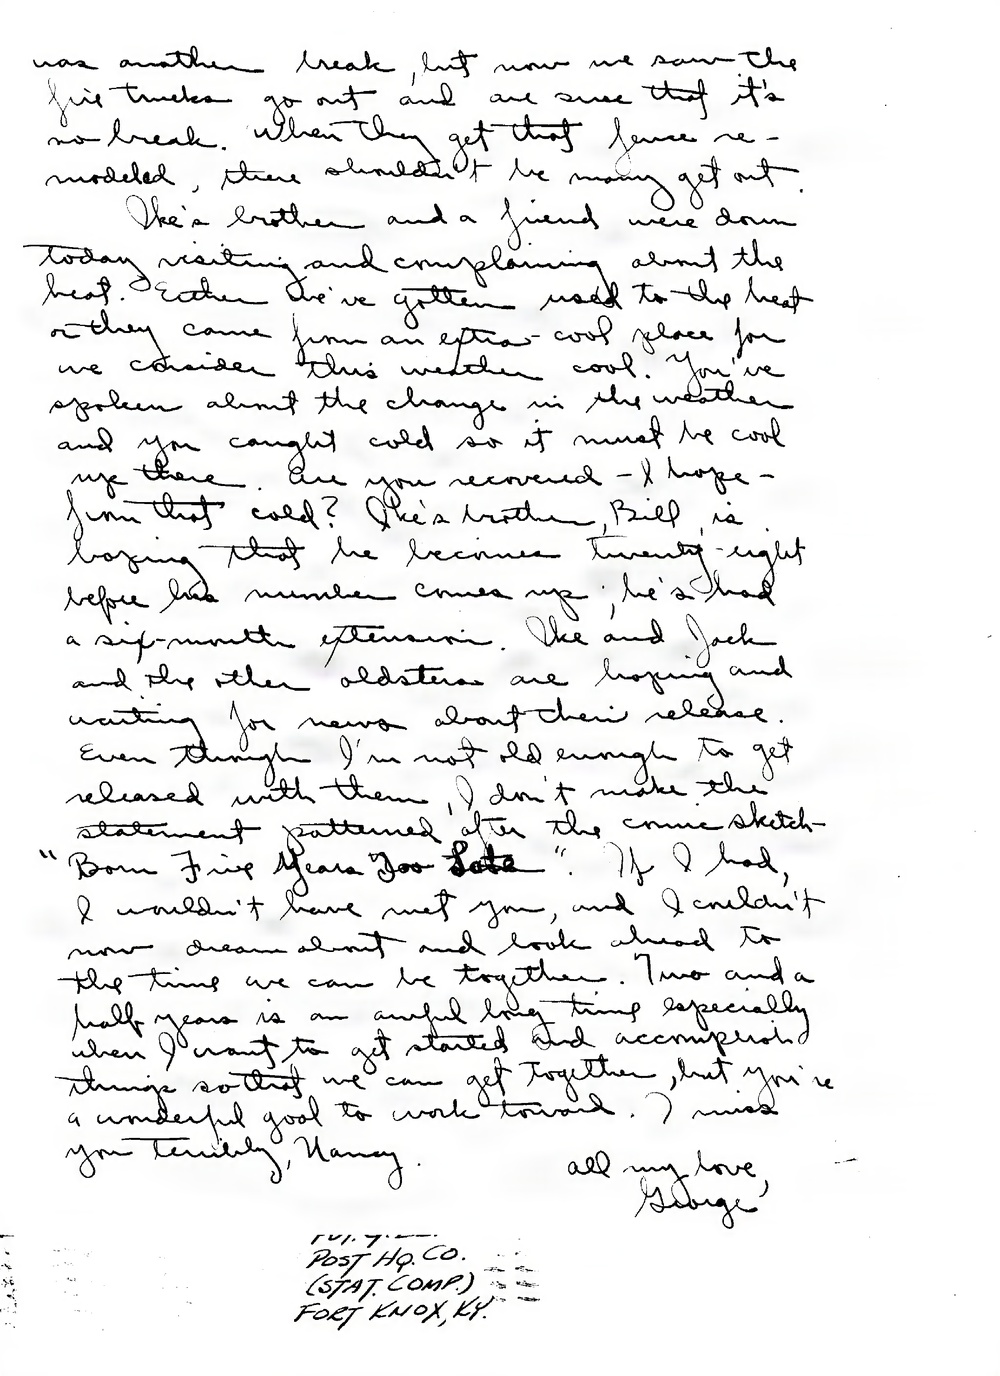 was another break, but now we saw the
fire trucks go out and are sure that it's
no break. When they get that fence re-
modeled, there shouldn't be many get out.
Ike's brother and a friend were down
today visiting and complaining about the
heat. Either we've gotten used to the heat
or they came from an extra-cool place for
we consider this weather cool. You've
spoken about the change in the weather
and you caught cold so it must be cool
up there. Are you recovered - I hope -
from that cold? Ike's brother, Bill, is
hoping that he becomes twenty-eight
before his number comes up; he's had
a six-month extension. Ike and Jack
and the other oldsters are hoping and
waiting for news about their release.
Even though I'm not old enough to get
released with them, I don't make the
statement patterned after the comic sketch-
"Born Five Years Too Late". If I had,
I wouldn't have met you, and I couldn't
now dream about and look ahead to
the time we can be together. Two and a
half years is an awful long time especially
when I want to get started and accomplish
things so that we can get together, but you're
a wonderful goal to work toward. I miss
you terribly, Nancy.
All my love,
George
POST HQ. CO.
(STAT. COMP.)
FORT KNOX, KY.